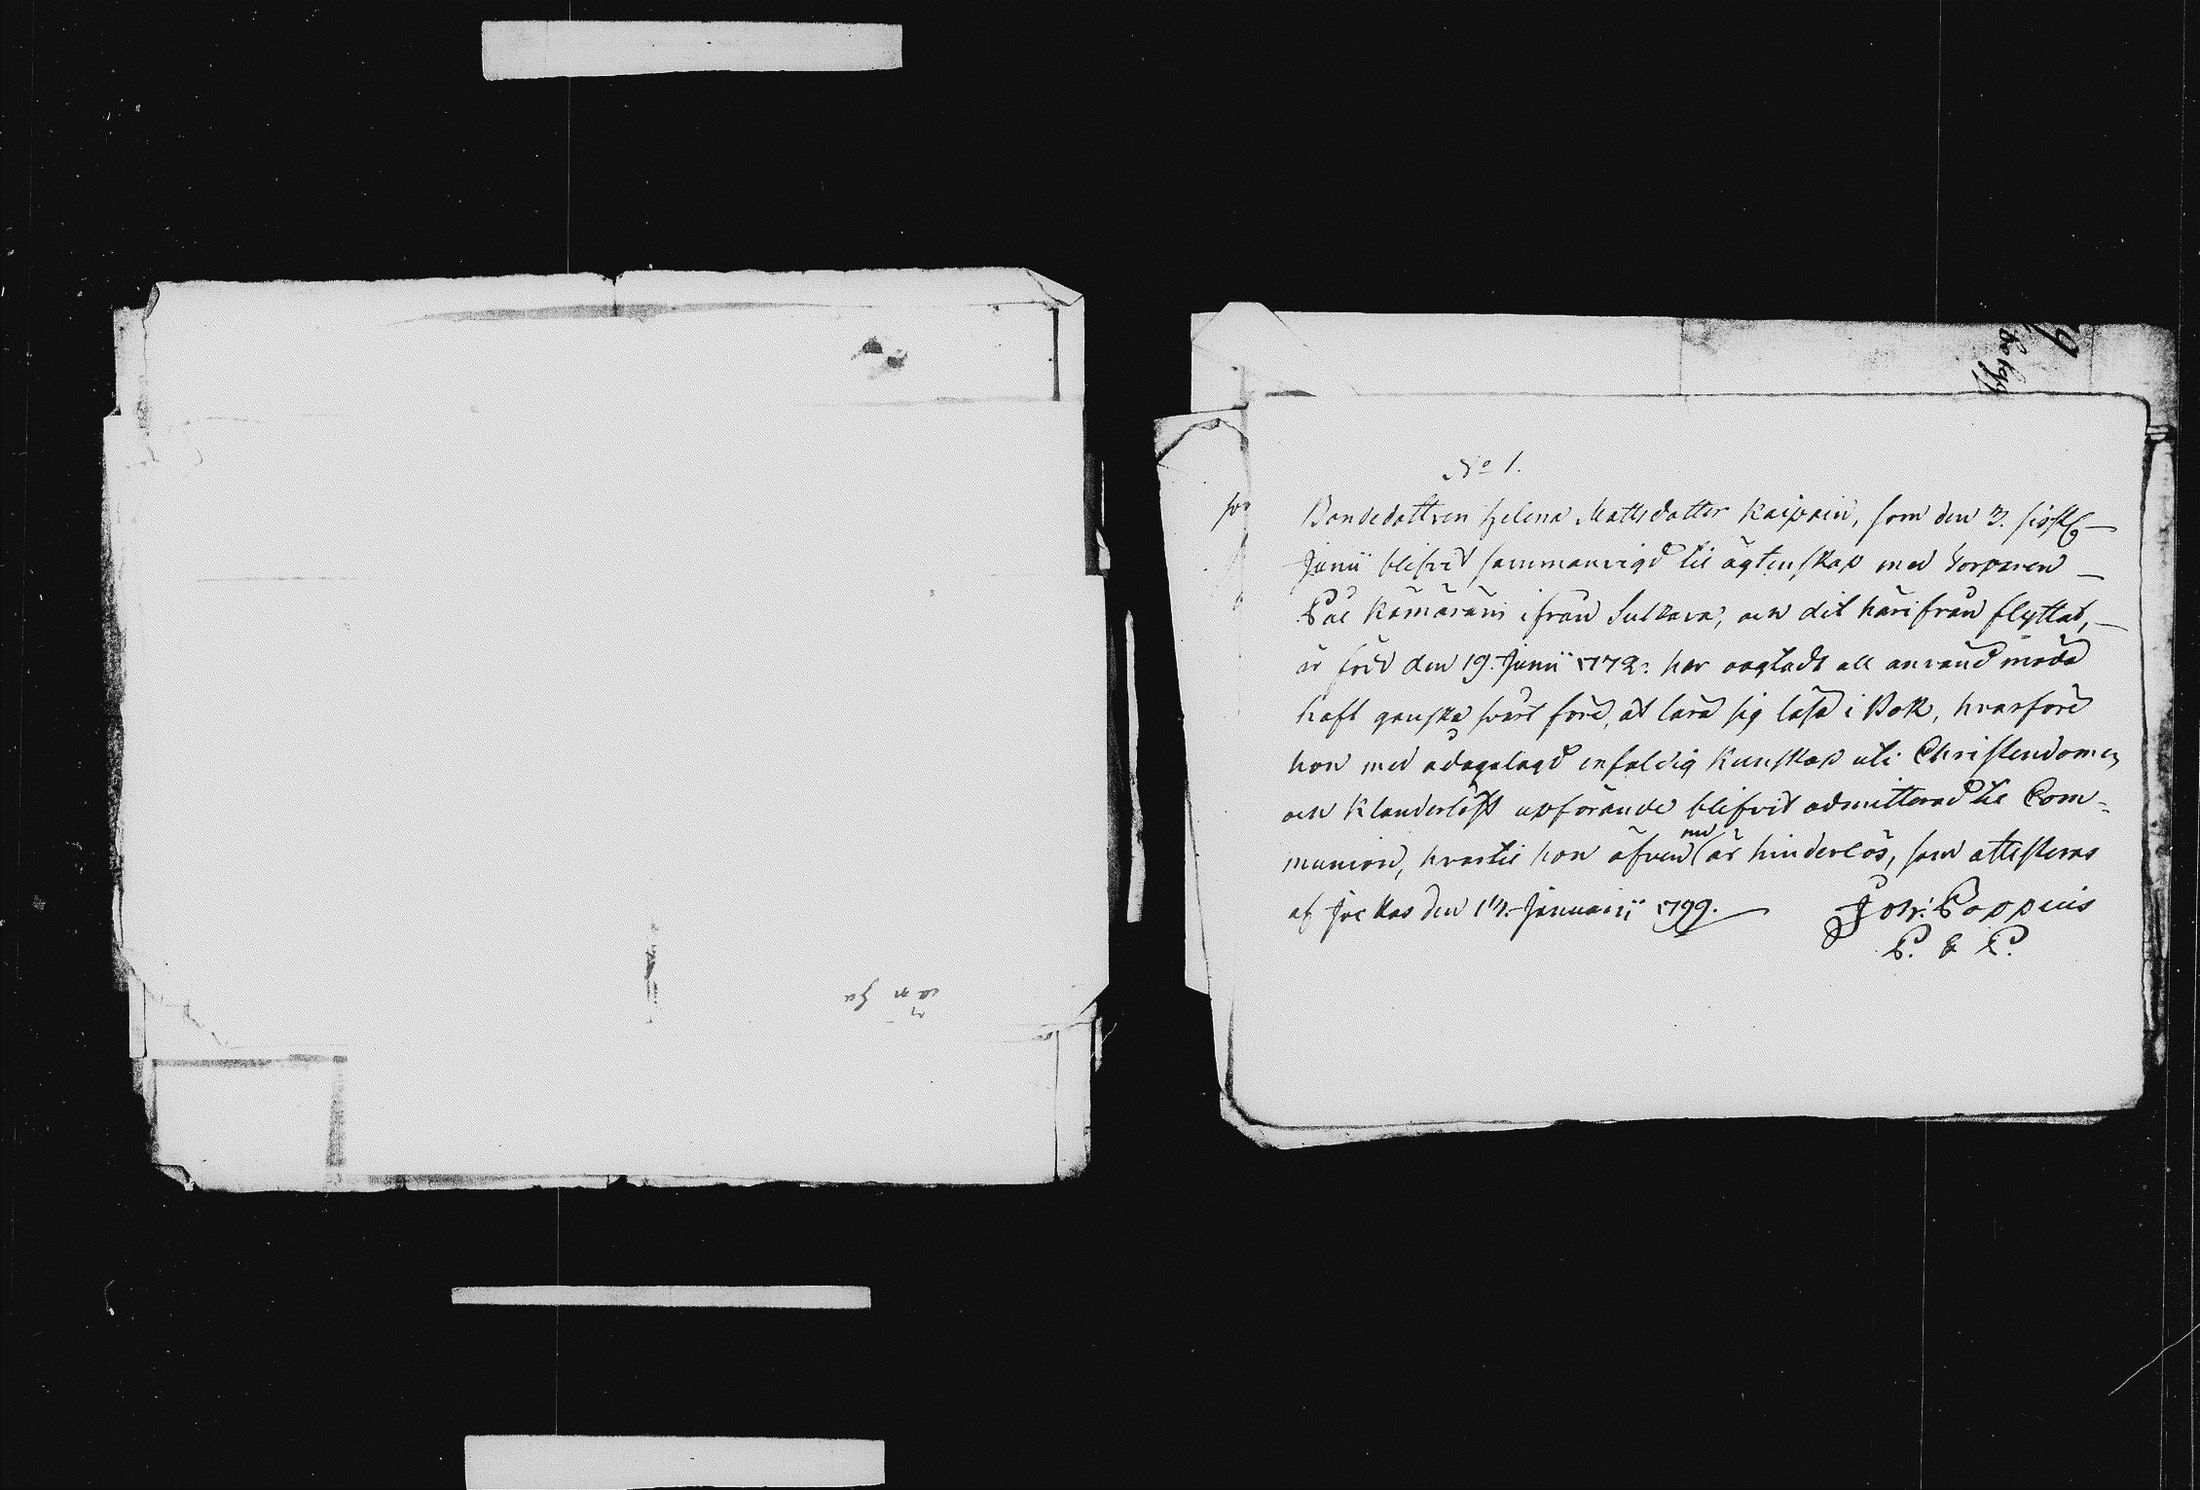 No 1.
Bondedottren Helena Mattsdotter Kaipain, som den 3. sistl.
Junii blifvit sammanvigd til ägtenskap med Torparen
Pål Kämäräin ifrån Sulkava, och dit härifrån flyttat,
är född den 19. Junii 1772. har oagtadt all anvand möda
haft ganska svårt före, at lära sig läsa i Bok, hvarföre
hon med ådagalagd enfaldig Kunskap uti Christendomen
och Klanderlöst upförande blifvit admitterad til Com=
munion, hvartil hon äfven nu är hinderlös, som attesteras
af Jockas den 17. Januarii 1799. Joh: Poppius
P. & P.